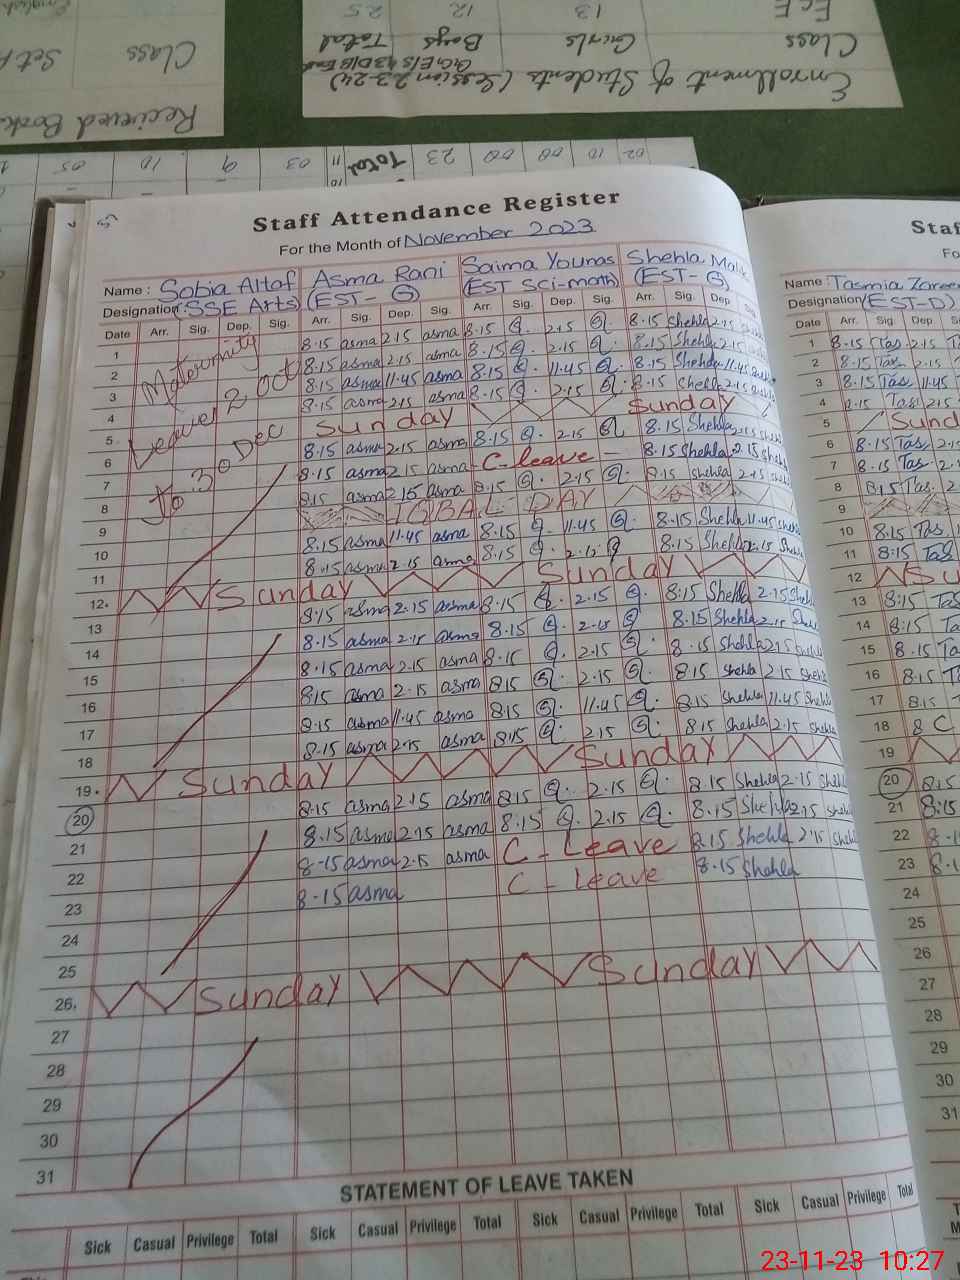 Enrollment of Students (Session 23-24)
Class Girls Boys Total
ECE 13 12 25
Recieved Book
Class
02 10 00 00 23 Total 11 03 9 10 05
Staff Attendance Register
For the Month of November 2023
Name : Sobia Altaf Asma Rani Saima Younas Shehla Malik
Designation : SSE Arts) (EST- G) (EST Sci-math) (EST- G)
Date Arr. Sig. Dep. Sig. Arr. Sig. Dep. Sig. Arr. Sig. Dep. Sig. Arr. Sig. Dep.
Maternity
Leaves 2 Oct
to 30 Dec
1 8.15 asma 2.15 asma 8.15 2.15 8.15 Shehla 2.15
2 8.15 asma 2.15 asma 8.15 2.15 8.15 Shehla 2.15
3 8.15 asma 11.45 asma 8.15 11.45 8.15 Shehla 11.45
4 8.15 asma 2.15 asma 8.15 2.15 8.15 Shehla 2.15
5 Sunday Sunday
6 8.15 asma 2.15 asma 8.15 2.15 8.15 Shehla 2.15
7 8.15 asma 2.15 asma C-leave 8.15 Shehla 2.15 Shehla
8 8.15 asma 2.15 asma 8.15 2.15 8.15 Shehla 2.15
9 IQBAL DAY
10 8.15 asma 11.45 asma 8.15 11.45 8.15 Shehla 11.45
11 8.15 asma 2.15 asma 8.15 2.15 8.15 Shehla 2.15
12. Sunday Sunday
13 8:15 asma 2.15 asma 8.15 2.15 8:15 Shehla 2.15
14 8.15 asma 2.15 asma 8.15 2.15 8.15 Shehla 2.15
15 8.15 asma 2.15 asma 8.15 2.15 8.15 Shehla 2.15
16 8.15 asma 2.15 asma 8.15 2.15 8.15 Shehla 2.15
17 8.15 asma 11.45 asma 8.15 11.45 8.15 Shehla 11.45 Shehla
18 8.15 asma 2.15 asma 8.15 2.15 8.15 Shehla 2.15
19. Sunday Sunday
20 8.15 asma 2.15 asma 8.15 2.15 8.15 Shehla 2.15
21 8.15 asma 2.15 asma 8.15 2.15 8.15 Shehla 2.15
22 8.15 asma 2.15 asma C - Leave 8.15 Shehla 2.15
23 8.15 asma C - Leave 8.15 Shehla
24
25
26. Sunday Sunday
27
28
29
30
31
STATEMENT OF LEAVE TAKEN
Sick Casual Privilege Total Sick Casual Privilege Total Sick Casual Privilege Total Sick Casual Privilege Total
Name : Tasmia
Designation (EST-D)
Date Arr. Sig. Dep.
1 8.15 Tas 2.15
2 8.15 Tas 2.15
3 8.15 Tas 11.45
4 2.15
5
6 8.15 Tas
7 8.15 Tas.
8 8.15 Tas.
9
10 8.15
11 8:15 Tas
12
13 8:15
14 8:15
15 8.15
16 8.15
17 8.15
18 8 C
19
20 8.15
21 8:15
22
23
24
25
26
27
28
29
30
31
23-11-23 10:27